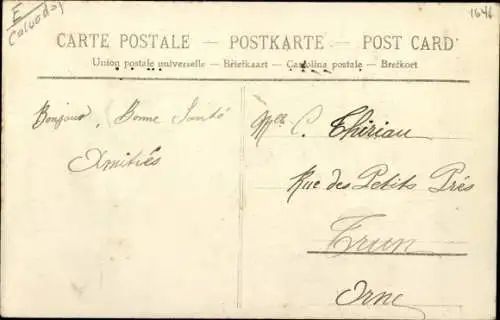 E
Calvados
1646
CARTE POSTALE — POSTKARTE — POST CARD
Union postale universelle — Briefkaart — Cartolina postale — Brefkort
Bonjour, Bonne Santé
Amitiés
Mlle C. Thiriau
Rue des Petits Prés
Trun
Orne